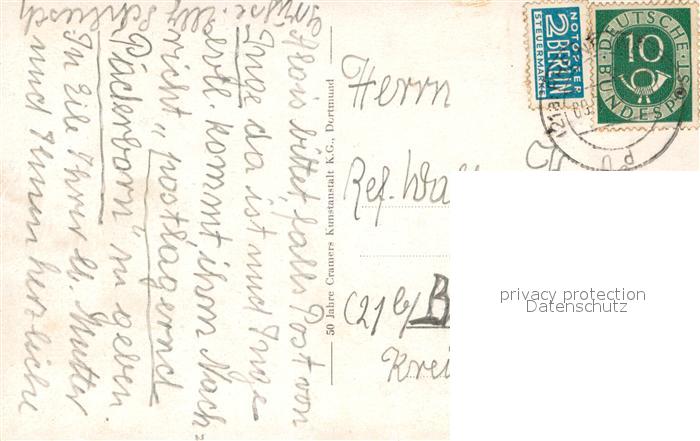 Alois bittet, falls Post von
Inge da ist und Inge
evtl. kommt ihm Nach=
richt „postlagernd
Paderborn" zu geben.
In Eile Ihrer lb. Mutter
und Ihnen herzliche
Grüße
50 Jahre Cramers Kunstanstalt K.G., Dortmund
Herrn
Ref.
(21b)
Krei
NOTOPFER
2 BERLIN
STEUERMARKE
DEUTSCHE
10
BUNDESPOST
(21a)
privacy protection
Datenschutz